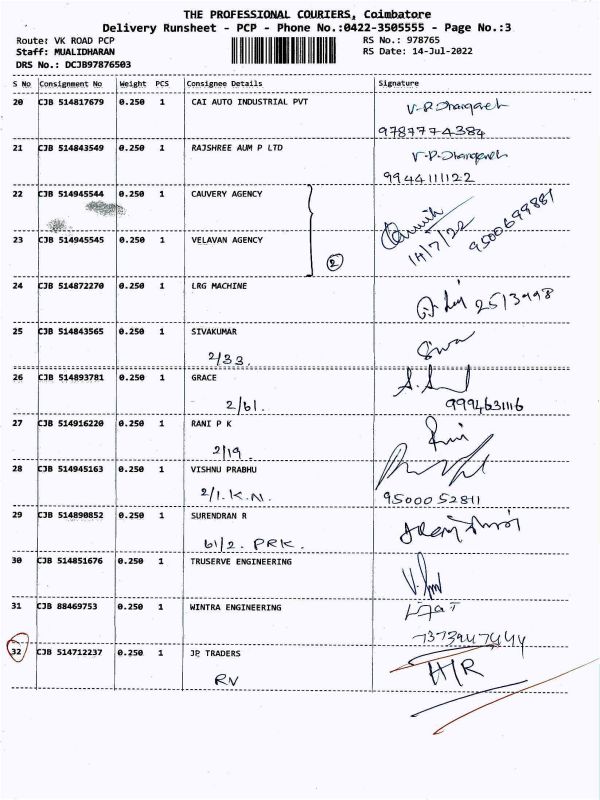 THE PROFESSIONAL COURIERS, Coimbatore
Delivery Runsheet - PCP - Phone No.:0422-3505555 - Page No.:3
Route: VK ROAD PCP
RS No.: 978765
Staff: MUALIDHARAN
RS Date: 14-Jul-2022
DRS No.: DCJB97876503
S No Consignment No Weight PCS Consignee Details Signature
20 CJB 514817679 0.250 1 CAI AUTO INDUSTRIAL PVT
9787774384
21 CJB 514843549 0.250 1 RAJSHREE AUM P LTD
9944111122
22 CJB 514945544 0.250 1 CAUVERY AGENCY
14/7/22 9500699881
23 CJB 514945545 0.250 1 VELAVAN AGENCY
2
24 CJB 514872270 0.250 1 LRG MACHINE
25 CJB 514843565 0.250 1 SIVAKUMAR
2/33. Siva
26 CJB 514893781 0.250 1 GRACE
2/61. 9994631116
27 CJB 514916220 0.250 1 RANI P K
2/19.
28 CJB 514945163 0.250 1 VISHNU PRABHU
2/1. K.N. 9500052811
29 CJB 514890852 0.250 1 SURENDRAN R
61/2. PRK.
30 CJB 514851676 0.250 1 TRUSERVE ENGINEERING
31 CJB 88469753 0.250 1 WINTRA ENGINEERING
7373947444
32 CJB 514712237 0.250 1 JP TRADERS
RV H/R